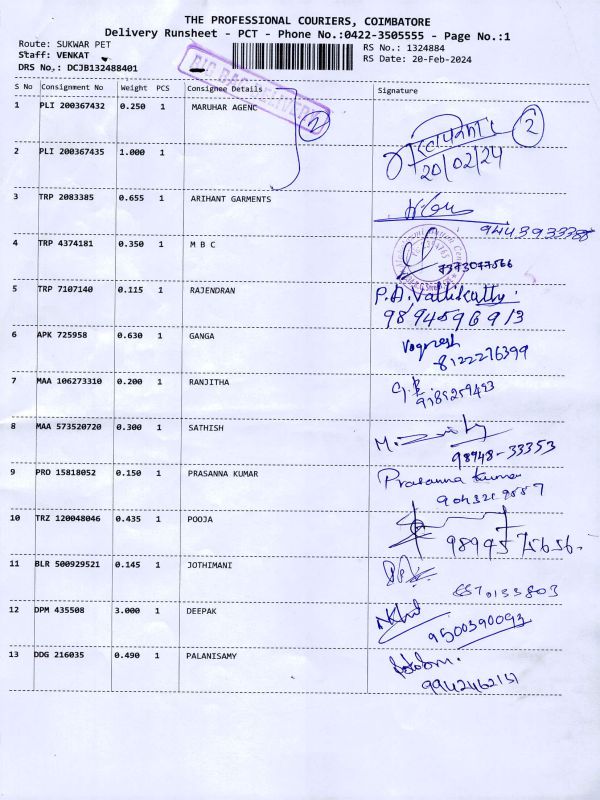 THE PROFESSIONAL COURIERS, COIMBATORE
Delivery Runsheet - PCT - Phone No.:0422-3505555 - Page No.:1
Route: SUKWAR PET
RS No.: 1324884
Staff: VENKAT
RS Date: 20-Feb-2024
DRS No.: DCJB132488401
S No Consignment No Weight PCS Consignee Details Signature
1 PLI 200367432 0.250 1 MARUHAR AGENC
2 2
20/02/24
2 PLI 200367435 1.000 1
3 TRP 2083385 0.655 1 ARIHANT GARMENTS
4 TRP 4374181 0.350 1 M B C
5 TRP 7107140 0.115 1 RAJENDRAN
P.A. Vallikutty.
9894596913
6 APK 725958 0.630 1 GANGA
8122276399
7 MAA 106273310 0.200 1 RANJITHA
8 MAA 573520720 0.300 1 SATHISH
98948-33353
9 PRO 15818052 0.150 1 PRASANNA KUMAR
Prasanna kumar
10 TRZ 120048046 0.435 1 POOJA
98945 75656.
11 BLR 500929521 0.145 1 JOTHIMANI
12 DPM 435508 3.000 1 DEEPAK
9500390093
13 DDG 216035 0.490 1 PALANISAMY